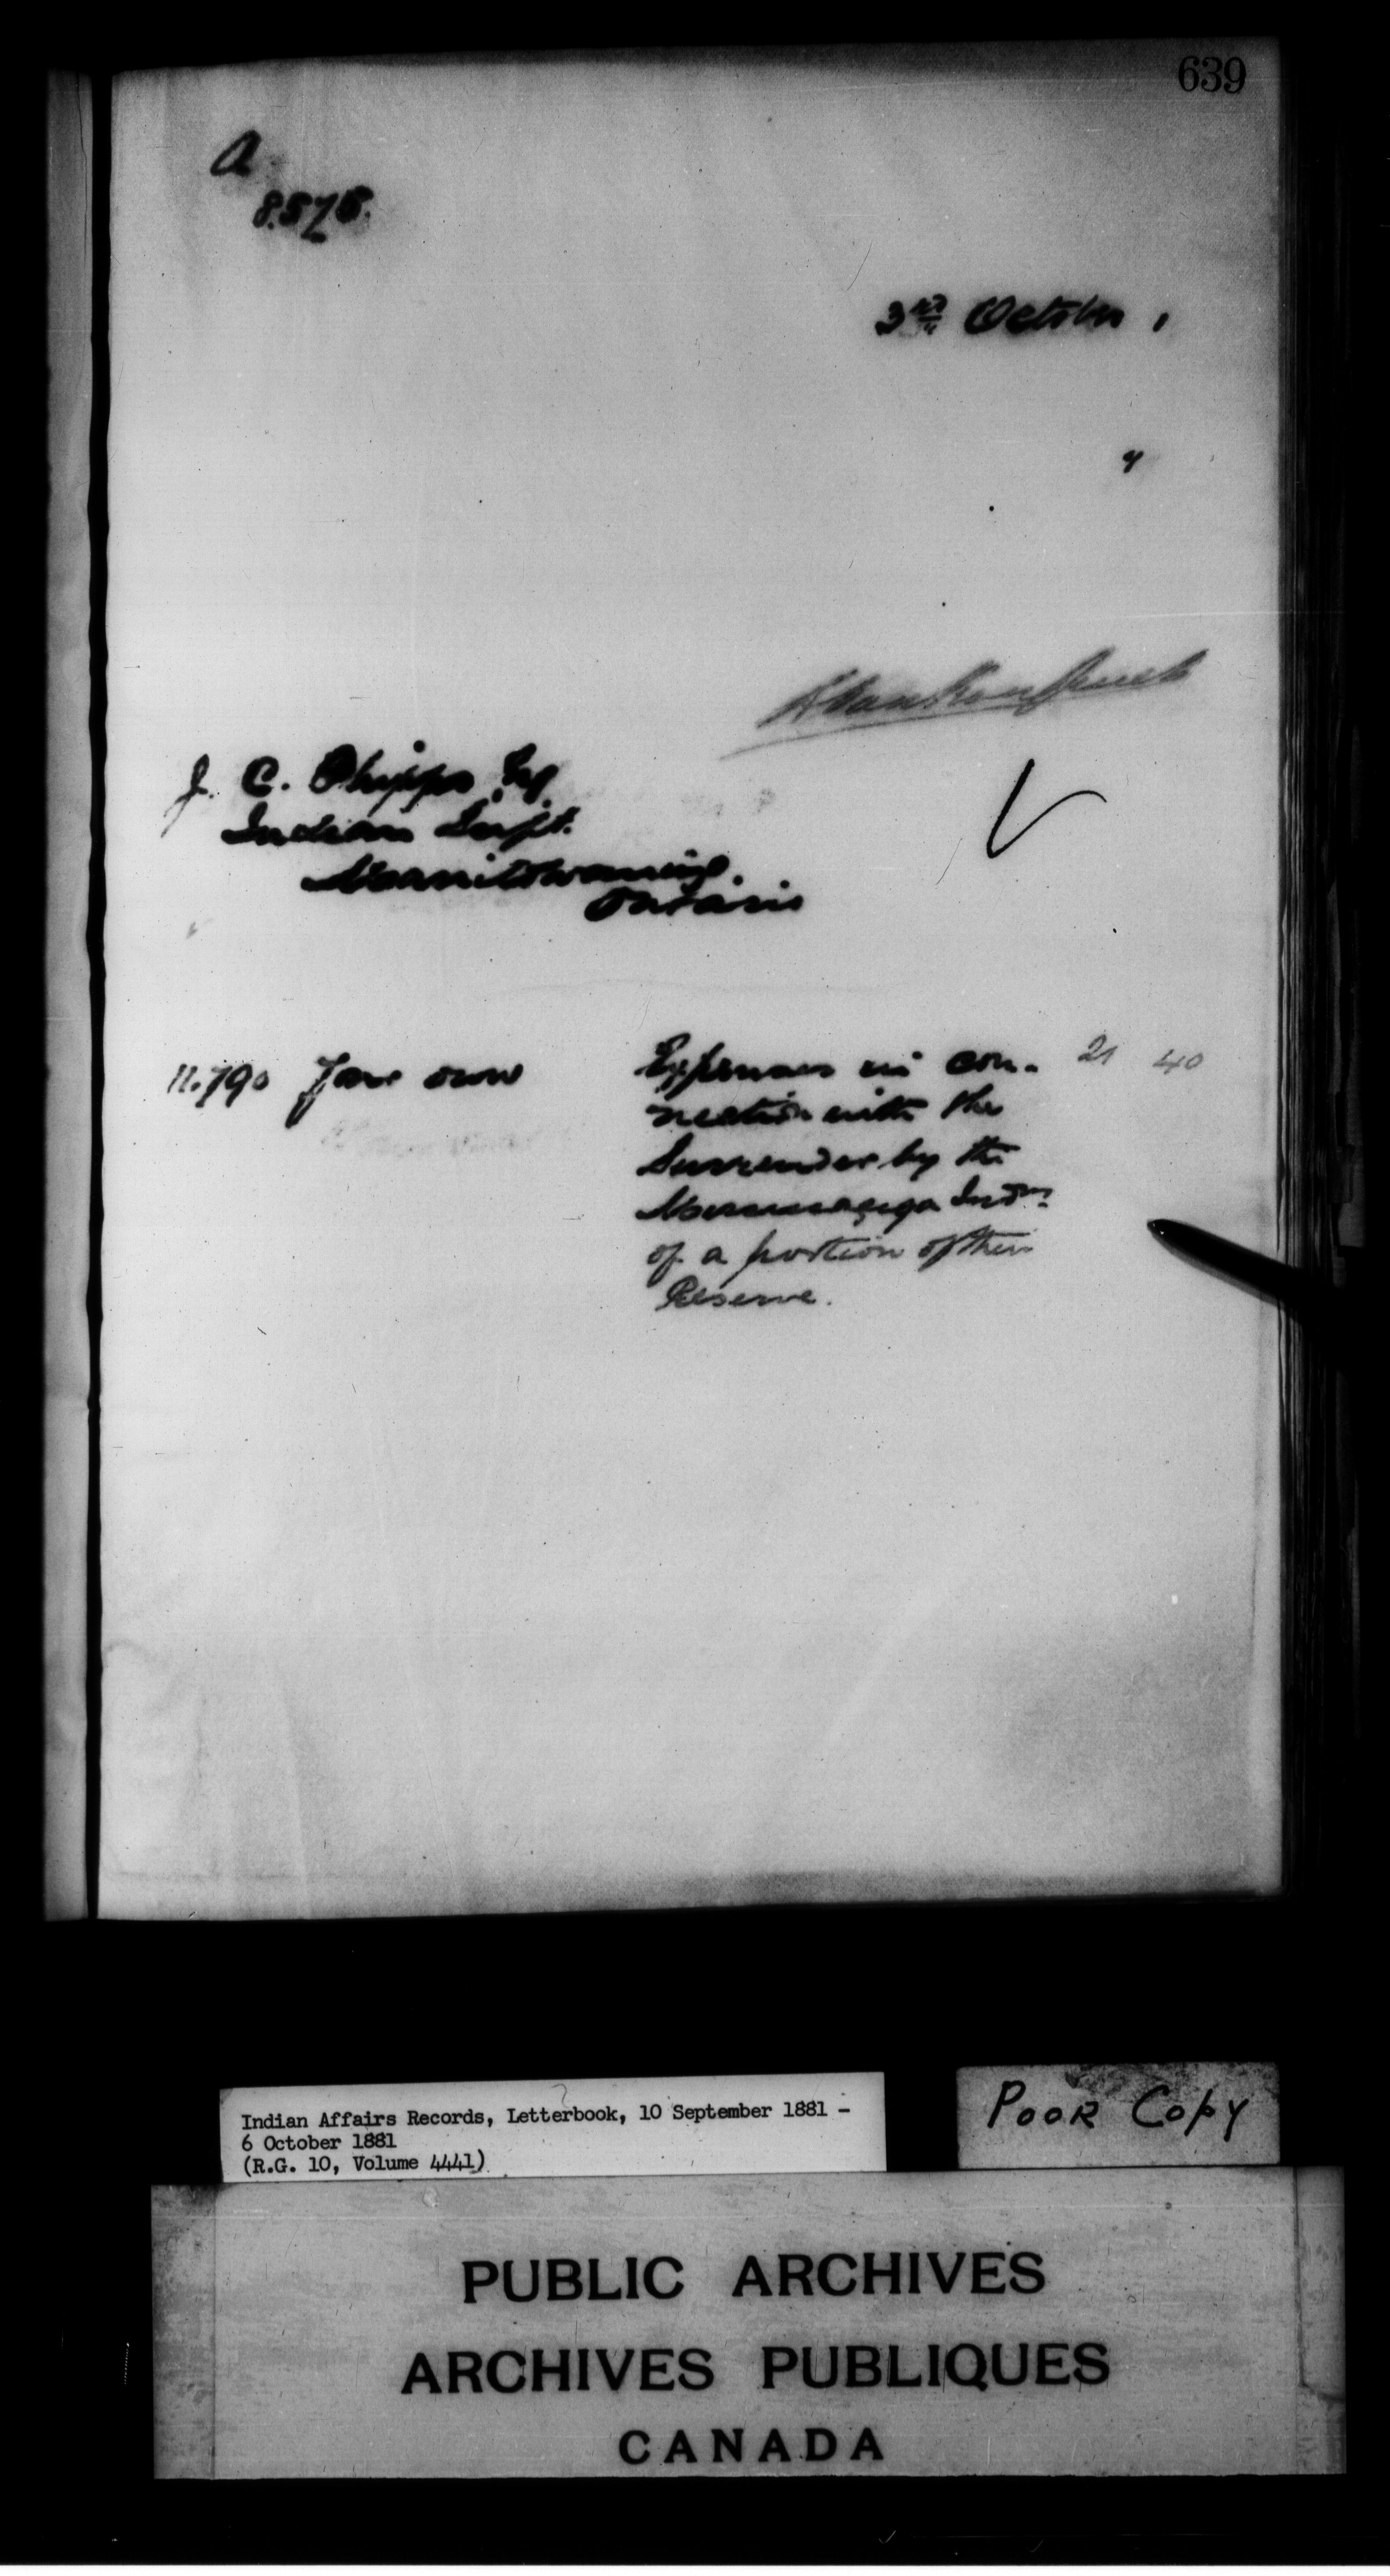 639
A
8.575.
3rd October 1
4
J. C. Phipps Esq
Indian Supt.
Manitowaning.
Ontario
11.790 Your own Expenses in con- 21 40
nection with the
Surrender by the
Indns
of a portion of their
Reserve.
Indian Affairs Records, Letterbook, 10 September 1881 -
6 October 1881
(R.G. 10, Volume 4441)
POOR COPY
PUBLIC ARCHIVES
ARCHIVES PUBLIQUES
CANADA